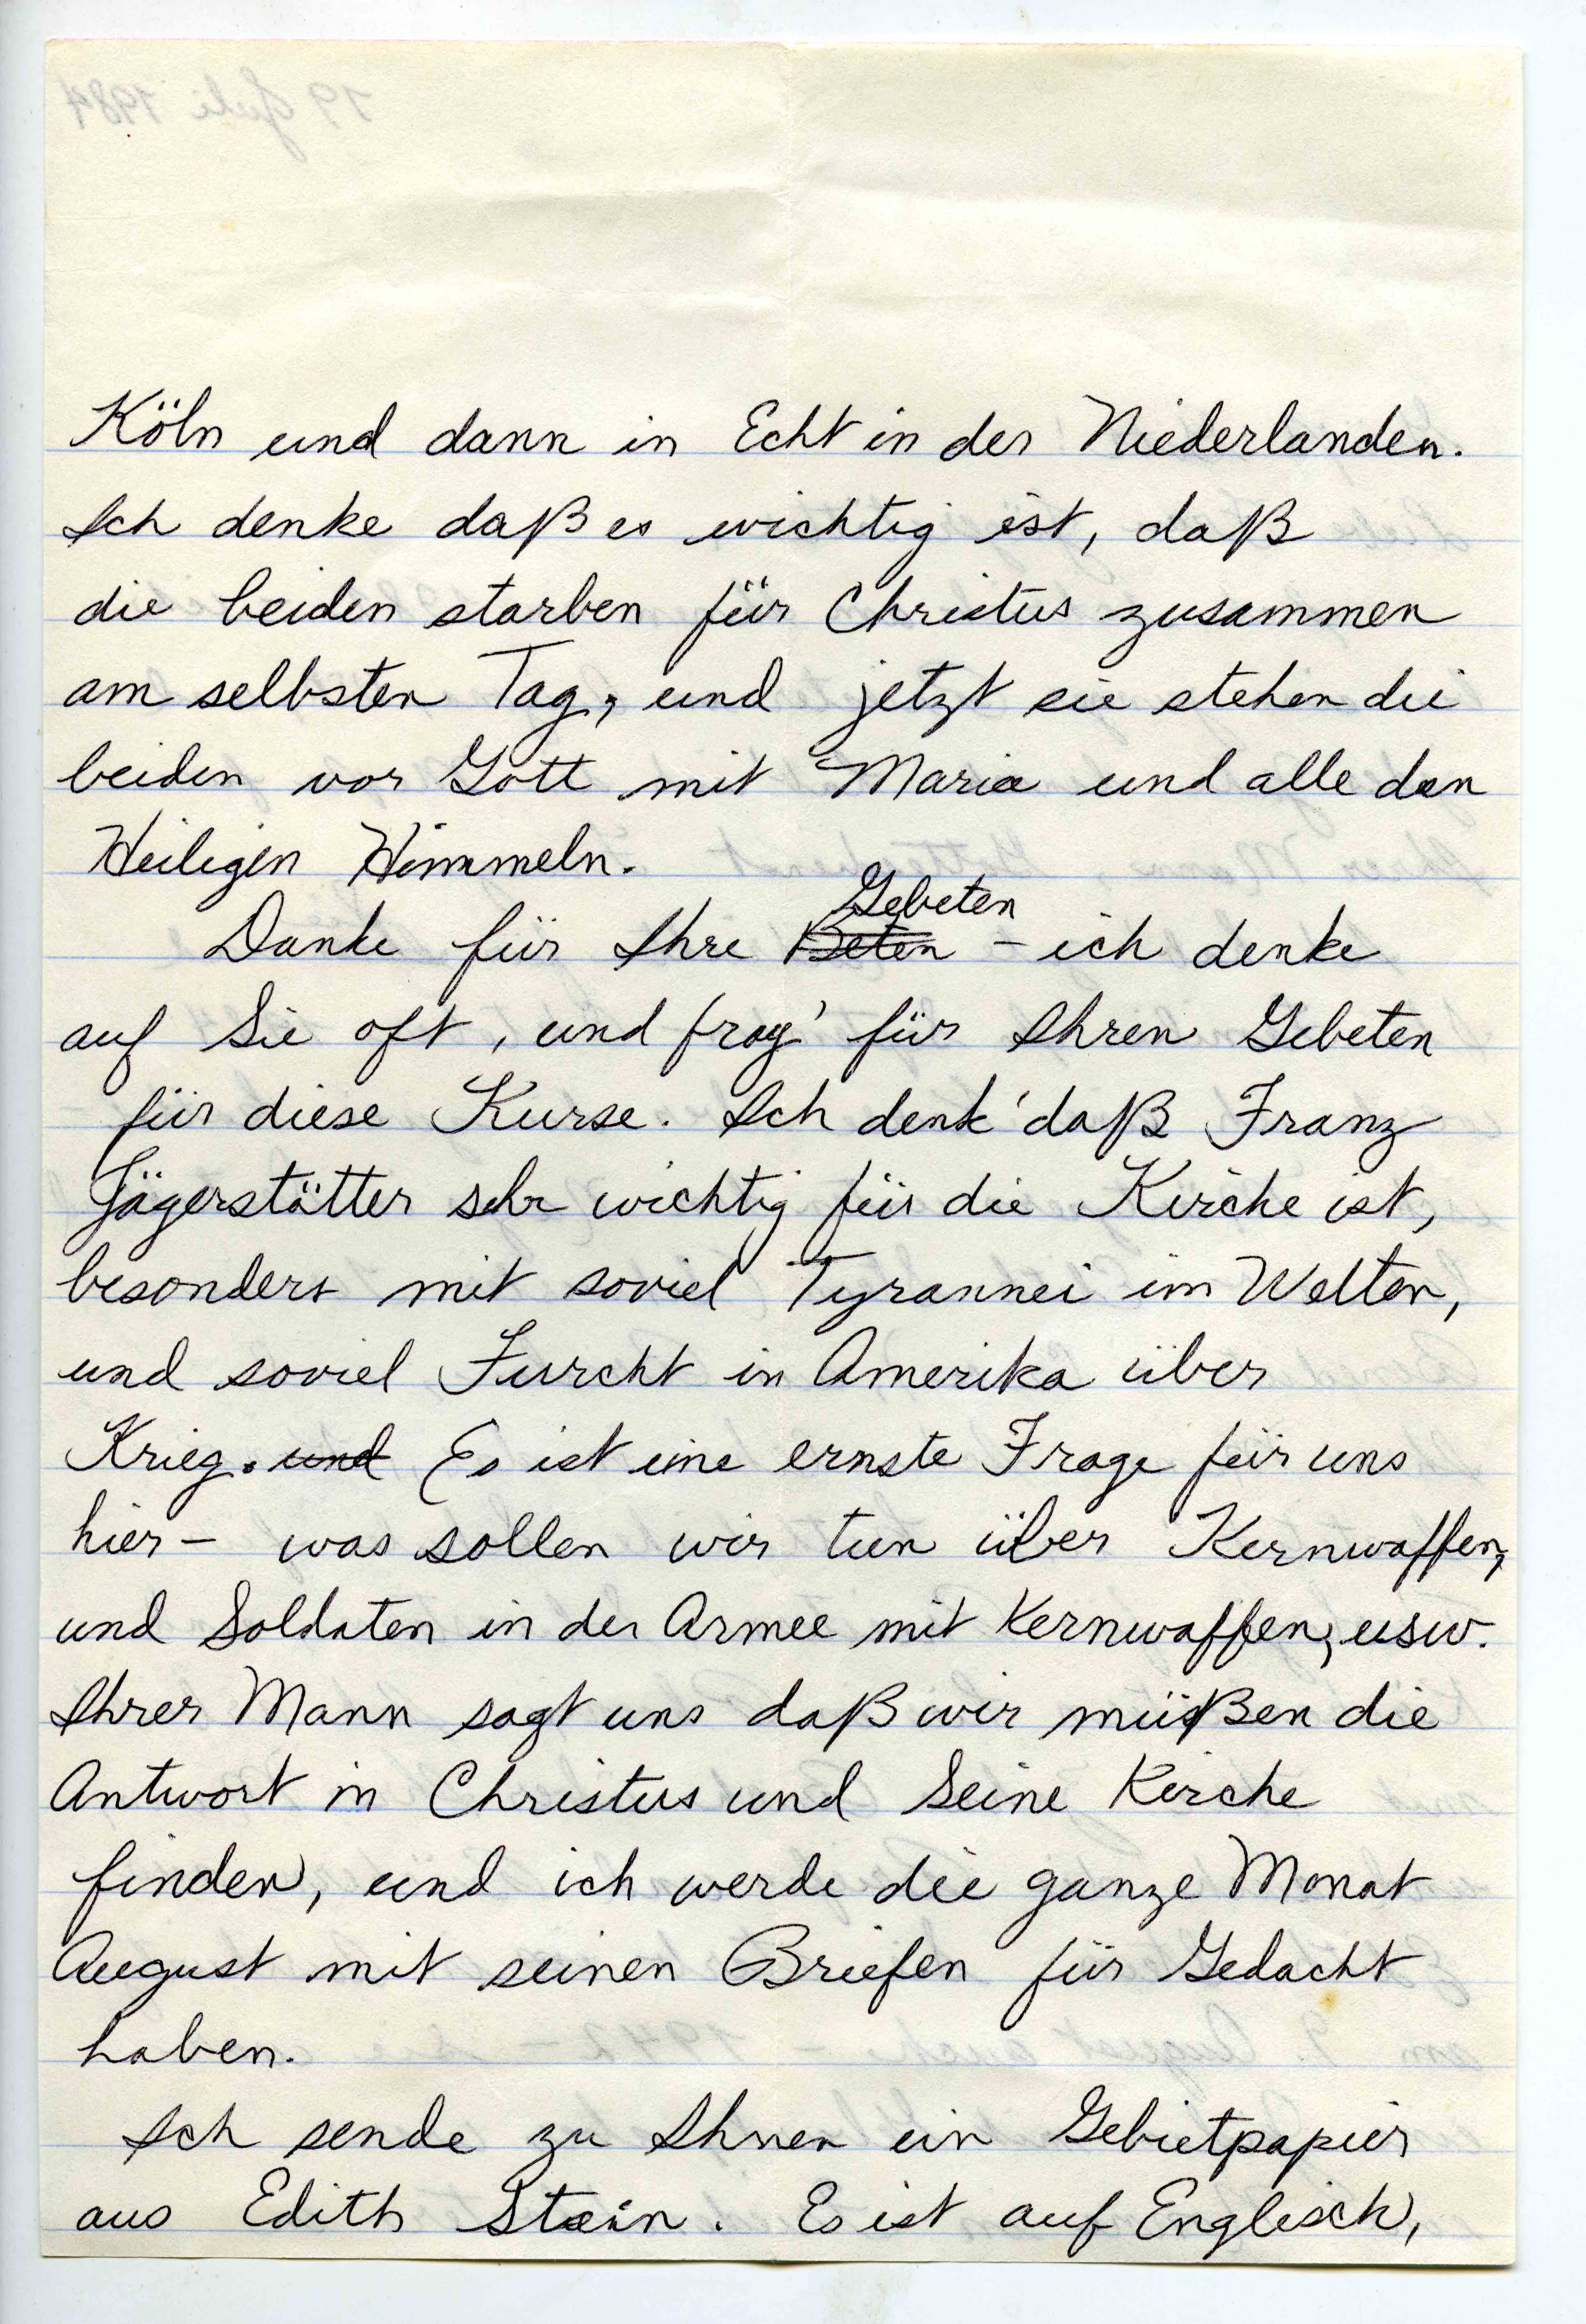 19 Juli 1984
Köln und dann in Echt in der Niederlanden.
Ich denke daß es wichtig ist, daß
die beiden starben für Christus zusammen
am selbsten Tag, und jetzt sie stehen die
beiden vor Gott mit Maria und alle den
Heiligen Himmeln.
Danke für Ihre Beten Gebeten – ich denke
auf Sie oft, und frag' für Ihren Gebeten
für diese Kurse. Ich denk' daß Franz
Jägerstätter sehr wichtig für die Kirche ist,
besonders mit soviel Tyrannei im Welten,
und soviel Furcht in Amerika über
Krieg. und Es ist eine ernste Frage für uns
hier – was sollen wir tun über Kernwaffen,
und Soldaten in der Armee mit Kernwaffen, usw.
Ihrer Mann sagt uns daß wir müßen die
Antwort in Christus und Seine Kirche
finden, und ich werde die ganze Monat
August mit seinen Briefen für Gedacht
haben.
Ich sende zu Ihnen ein Gebietpapier
aus Edith Stein. Es ist auf Englisch,